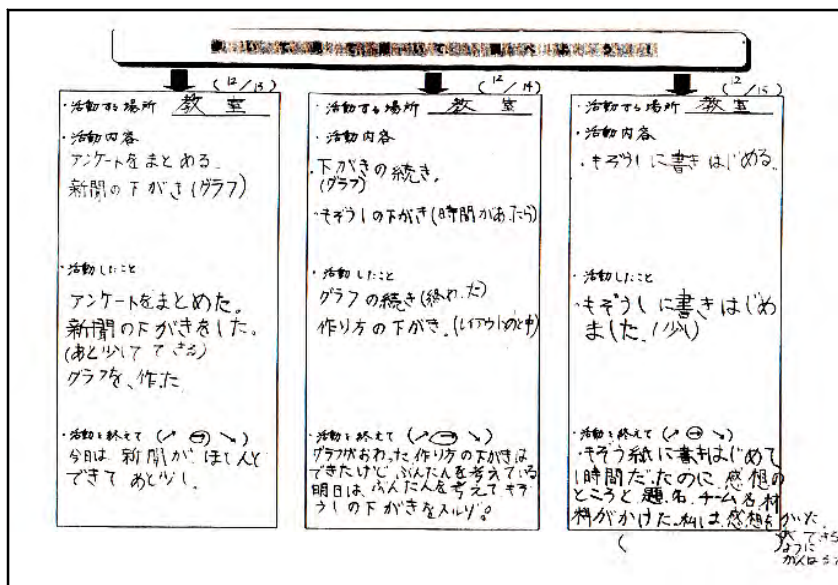 (12/13)
・活動する場所 教室
・活動内容
アンケートをまとめる。
新聞の下がき(グラフ)
・活動したこと
アンケートをまとめた。
新聞の下がきをした。
(あと少しでできる)
グラフを、作った
・活動を終えて (↗ → ↘)
今日は、新聞が、ほとんど
できて あと少し。
(12/14)
・活動する場所 教室
・活動内容
・下がきの続き。
(グラフ)
・もぞうしの下がき(時間があったら)
・活動したこと
グラフの続き(終わった)
作り方の下がき。(レイアウトのと中)
・活動を終えて (↗ → ↘)
グラフがおわった。作り方の下がきは
できたけど、ぶんたんを考えている
明日は、ぶんたんを考えて、もぞ
うしの下がきを入ルゾ。
(12/15)
・活動する場所 教室
・活動内容
・もぞうしに書きはじめる。
・活動したこと
・もぞうしに書きはじめ
ました。(少し)
・活動を終えて (↗ → ↘)
・もぞう紙に書きはじめて
1時間だったのに、感想の
ところと、題名、チーム名、材
料がかけた。私は、感想をかいた。